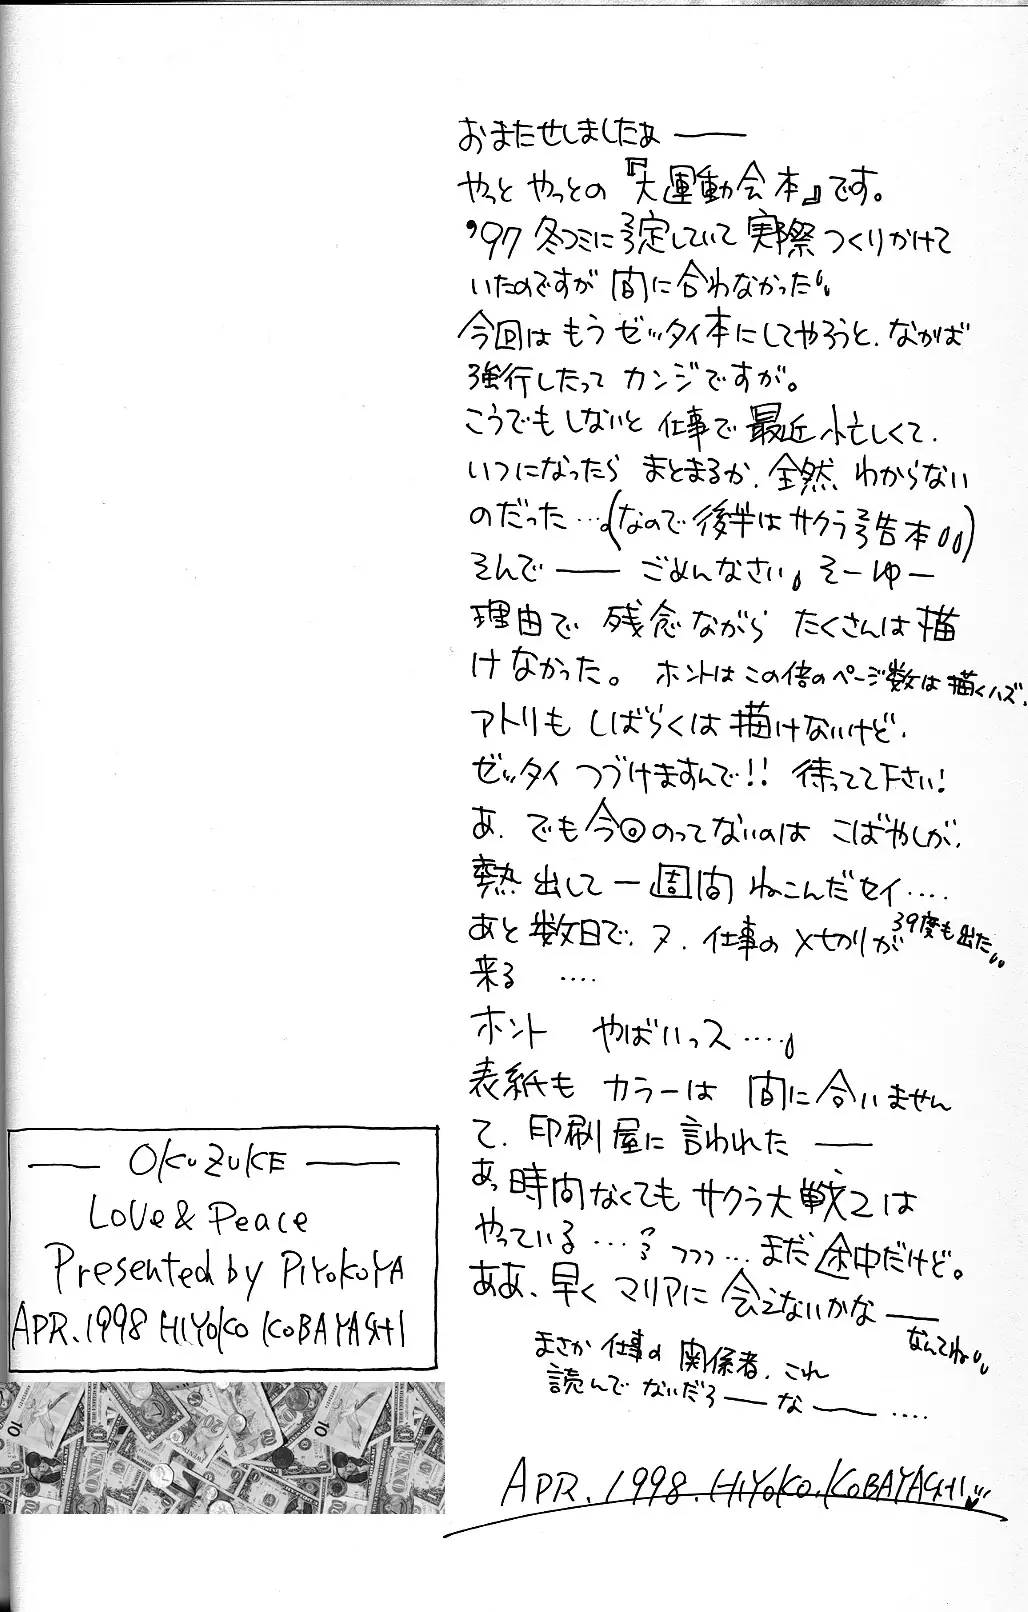 おまたせしましたぁ――
やっとやっとの『大運動会本』です。
'97冬コミに予定していて実際つくりかけて
いたのですが間に合わなかった
今回はもうゼッタイ本にしてやろうと、なかば
強行したってカンジですが。
こうでもしないと仕事で最近忙しくて、
いつになったらまとまるか、全然わからない
のだった…(なので後半はサクラ予告本)
そんで――ごめんなさい そーゆー
理由で残念ながらたくさんは描
けなかった。ホントはこの倍のページ数は描くハズ、
アトリもしばらくは描けないけど、
ゼッタイつづけますんで!!待ってて下さい!
あ、でも今回のってないのはこばやしが、
熱出して一週間ねこんだセイ‥‥
39度も出た
あと数日で、又、仕事の〆切りが
来る ‥‥
ホント やばいっス‥‥
表紙もカラーは間に合いません
て、印刷屋に言われた――
あっ時間なくてもサクラ大戦2は
やっている…?つつつ…まだ途中だけど。
ああ、早くマリアに会えないかな――
なんてね
まさか仕事の関係者、これ
読んでないだろ――な――‥‥
APR.1998.HIYOKO.KOBAYASHI
OKUZUKE
Love & Peace
Presented by PIYOKOYA
APR.1998 HIYOKO KOBAYASHI